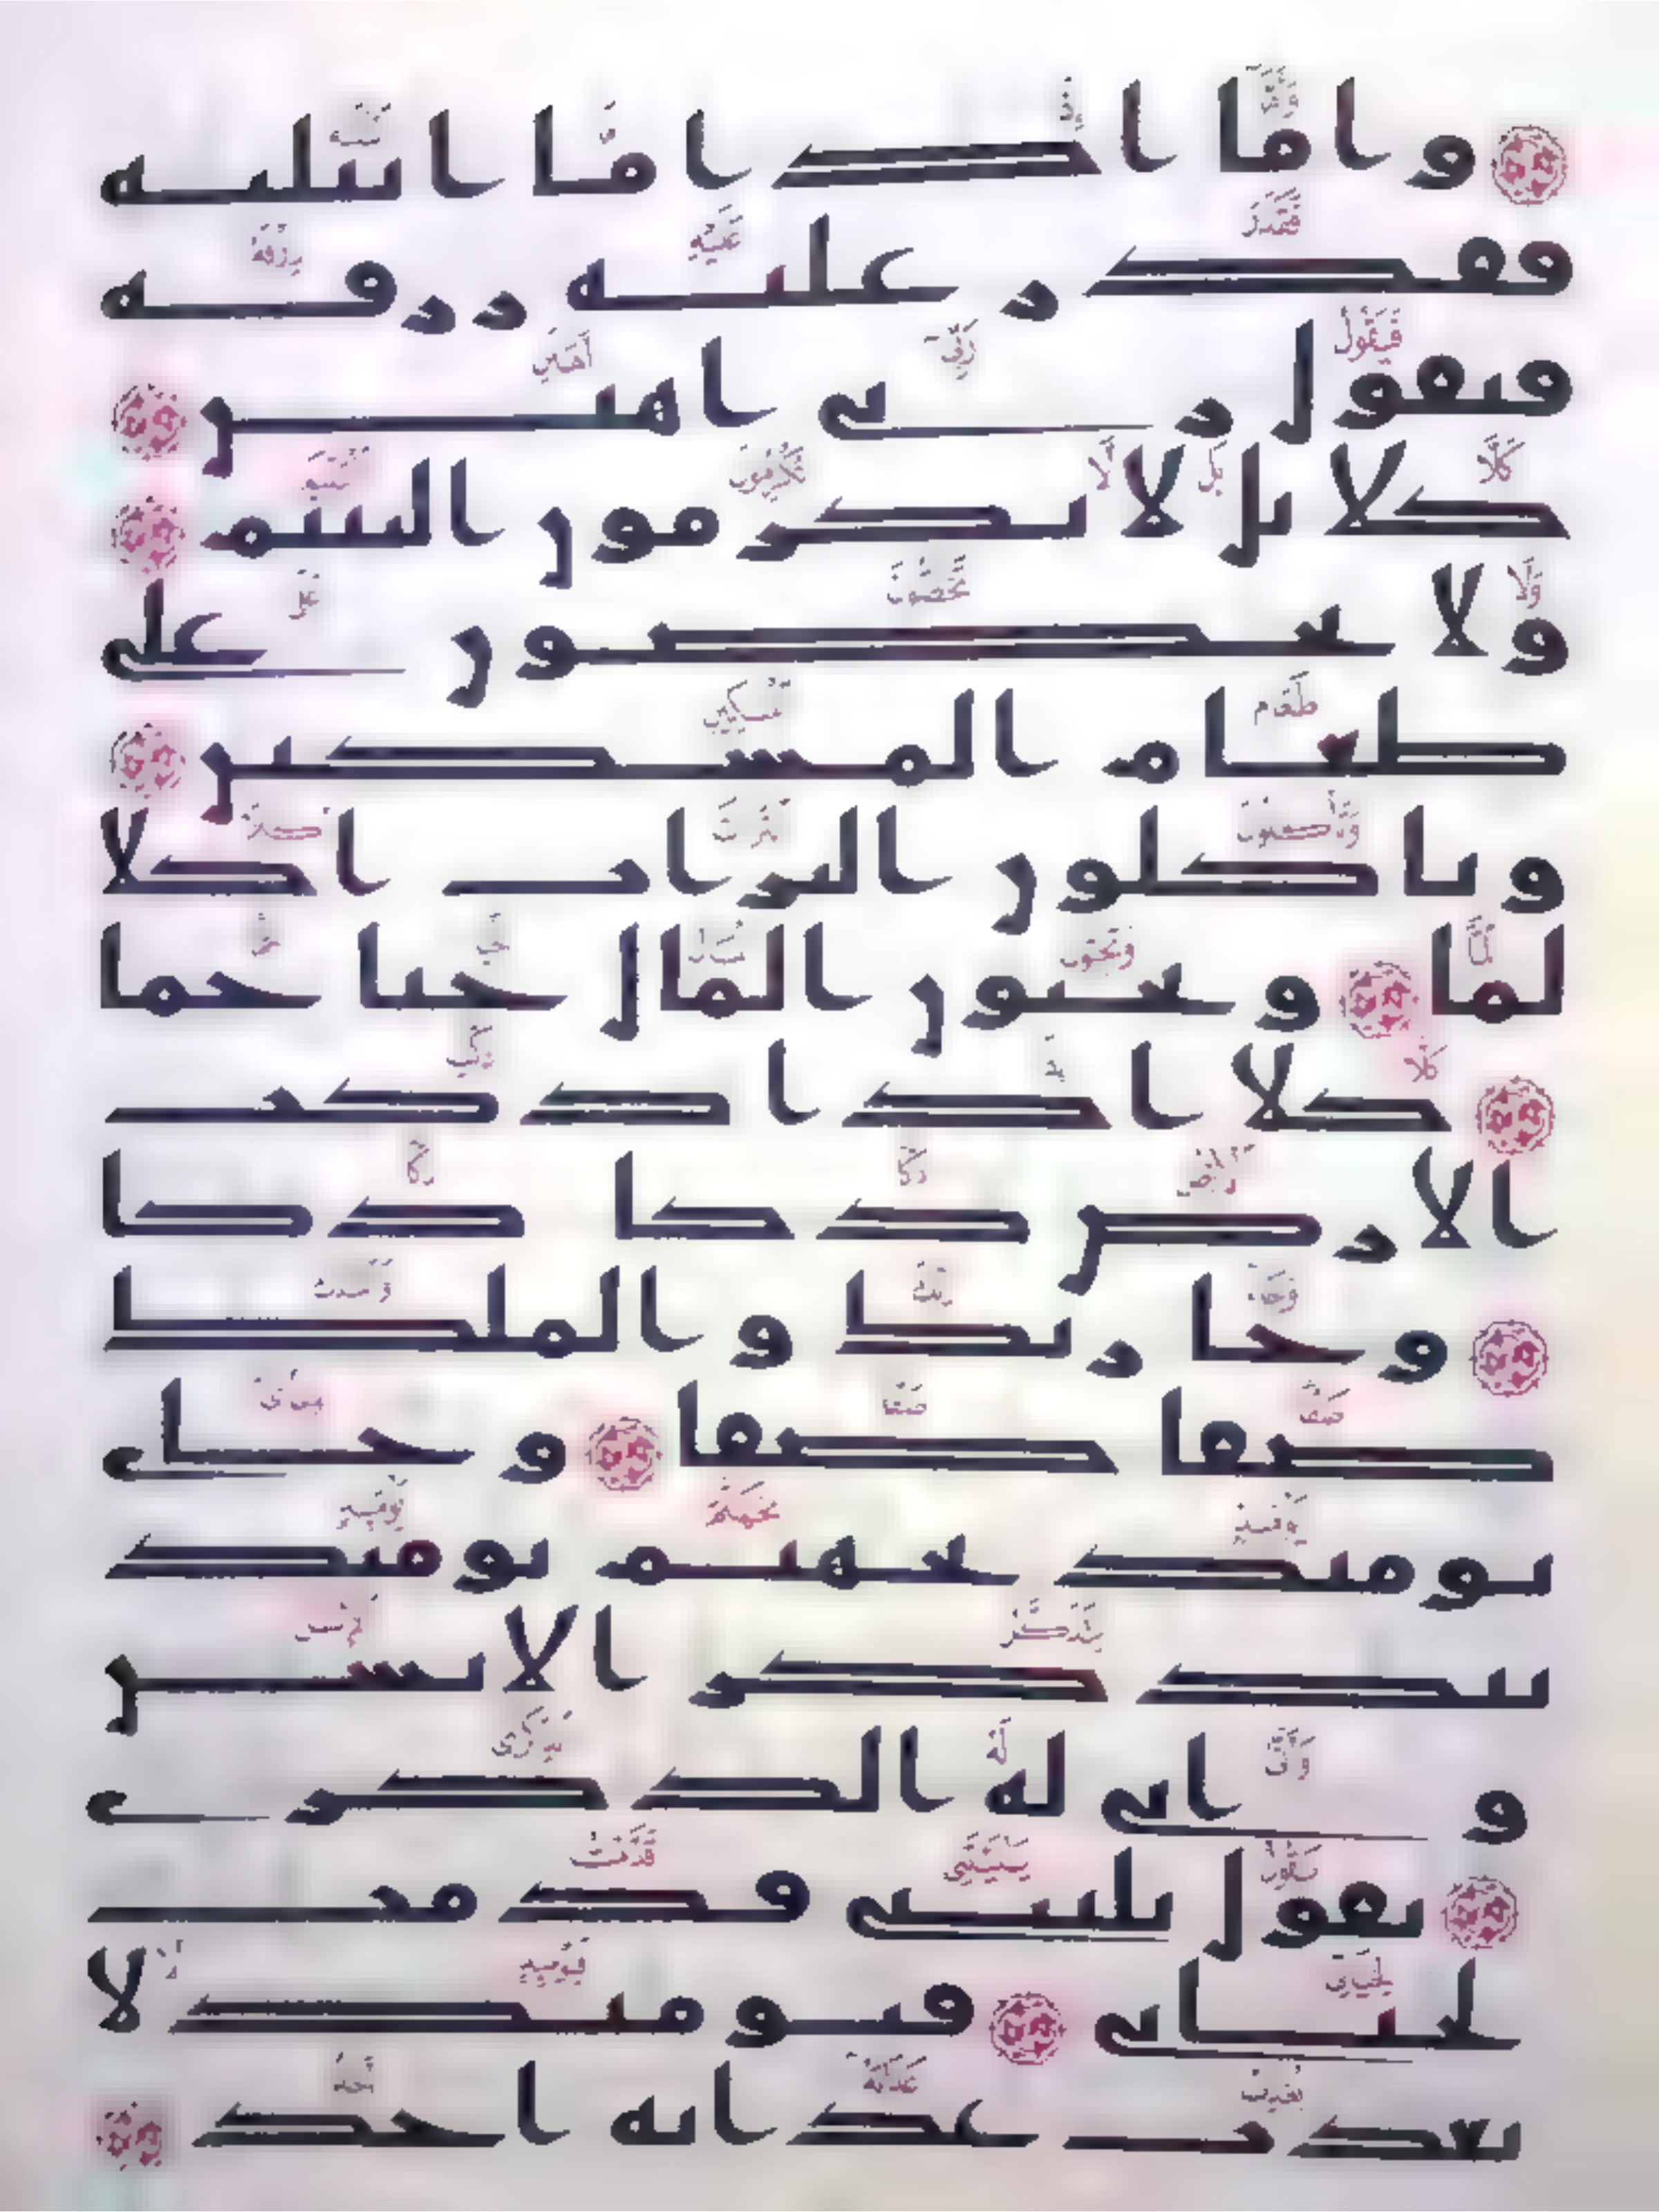 واما اذا ما ابتليه
فقدر عليه رزقه
فيقول ربي اهنن
كلا بل لا تكرمون اليتيم
ولا تحضون على
طعام المسكين
وتاكلون التراث اكلا
لما وتحبون المال حبا جما
كلا اذا دكت
الارض دكا دكا
وجا ربك والملك
صفا صفا وجاى
يومئذ بجهنم يومئذ
يتذكر الانسن
وانى له الذكرى
يقول يليتني قدمت
لحياتي فيومئذ لا
يعذب عذابه احد